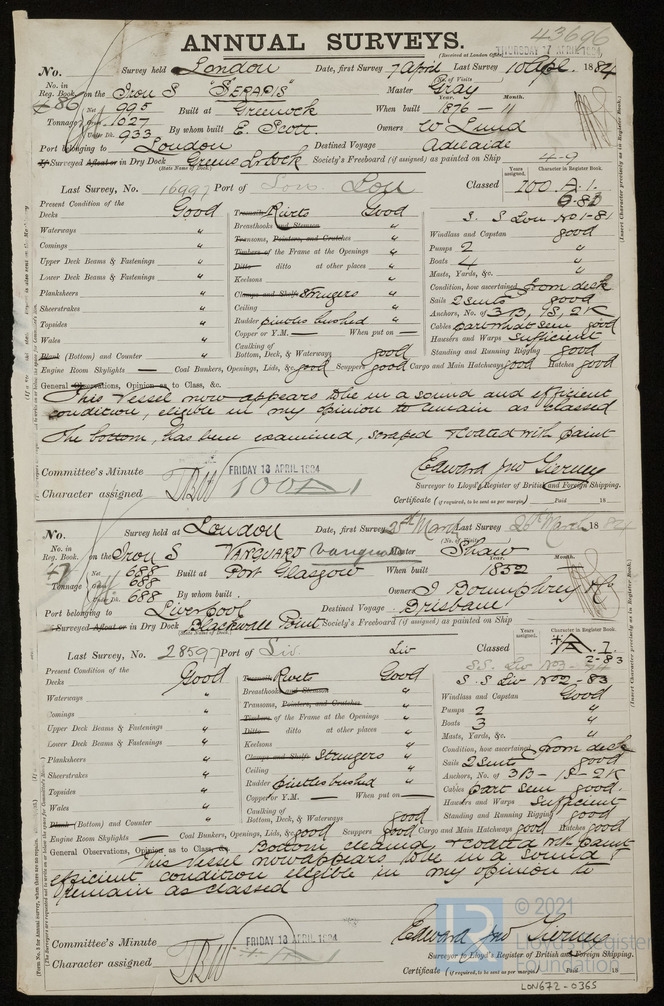 43696
ANNUAL SURVEYS.
(Received at London Office THURSDAY 17 APRIL 1884
No. Survey held London Date, first Survey 7 April Last Survey 10 Apl. 1884
(No. of Visits
No. in Reg. Book on the Iron S "SERAPIS" Master Gray
486
Tonnage Net 995 Built at Greenock When built Year. 1876 - Month. 11
Gross 1027
Under Dk. 933 By whom built E. Scott. Owners W Lund
Port belonging to London Destined Voyage Adelaide
If Surveyed Afloat or in Dry Dock Greens Lr Dock Society's Freeboard (if assigned) as painted on Ship 4-9
(State Name of Dock.)
Last Survey, No. 16997 Port of Lon Lon Classed Years assigned. 100 Character in Register Book. A. 1.
S. S Lon No 1-81
Present Condition of the
Decks Good
Waterways "
Comings "
Upper Deck Beams & Fastenings "
Lower Deck Beams & Fastenings "
Planksheers "
Sheerstrakes "
Topsides "
Wales "
Blank (Bottom) and Counter "
Treenails Rivets Good
Breasthooks and Stemson "
Transoms, Pointers, and Crutches "
Timbers of the Frame at the Openings "
Ditto ditto at other places "
Keelsons "
Clamps and Shelfs Stringers "
Ceiling "
Rudder pintles bushed "
Copper or Y.M. — When put on —
Caulking of Bottom, Deck, & Waterways good
Windlass and Capstan good
Pumps 2 "
Boats 4 "
Masts, Yards, &c. "
Condition, how ascertained from deck
Sails 2 suits good
Anchors, No. of 3B, 1S, 2K
Cables part what seen good
Hawsers and Warps Sufficient
Standing and Running Rigging good
Engine Room Skylights — Coal Bunkers, Openings, Lids, &c. good Scuppers good Cargo and Main Hatchways good Hatches good
General Observations, Opinion as to Class, &c.
This Vessel now appears to be in a sound and efficient
condition, eligible in my opinion to remain as classed
The bottom, has been examined, scraped & coated with paint
Committee's Minute FRIDAY 18 APRIL 1884
Character assigned 100A1
Edward Jno Tierney
Surveyor to Lloyd's Register of British and Foreign Shipping.
Certificate (if required, to be sent as per margin) Paid 18
No. Survey held at London Date, first Survey March Last Survey 20th March 1884
(No. of Visits
No. in Reg. Book. on the Iron S VANGUARD Vanguard Master Shaw
47
Tonnage Net 688 Built at Port Glasgow When built Year. 1852 Month. —
Gross 688
Under Dk. 688 By whom built Owners J Boumphrey
Port belonging to Liverpool Destined Voyage Brisbane
If Surveyed Afloat or in Dry Dock Blackwall Point Society's Freeboard (if assigned) as painted on Ship
(State Name of Dock.)
Last Survey, No. 28597 Port of Liv. Liv Classed Years assigned. Character in Register Book. A. 1.
2-83
S.S. Liv No 3-
S. S Liv No 2-83
Present Condition of the
Decks Good
Waterways "
Comings "
Upper Deck Beams & Fastenings "
Lower Deck Beams & Fastenings "
Planksheers "
Sheerstrakes "
Topsides "
Wales "
Blank (Bottom) and Counter "
Treenails Rivets Good
Breasthooks and Stemson "
Transoms, Pointers, and Crutches "
Timbers of the Frame at the Openings "
Ditto ditto at other places "
Keelsons "
Clamps and Shelfs Stringers "
Ceiling "
Rudder pintles bushed "
Copper or Y.M. — When put on —
Caulking of Bottom, Deck, & Waterways good
Windlass and Capstan Good
Pumps 2 "
Boats 3 "
Masts, Yards, &c. "
Condition, how ascertained from deck
Sails 2 suit good
Anchors, No. of 3B - 1S - 2K
Cables part seen good.
Hawsers and Warps Sufficient
Standing and Running Rigging good
Engine Room Skylights — Coal Bunkers, Openings, Lids, &c. good Scuppers good Cargo and Main Hatchways good Hatches good
General Observations, Opinion as to Class, &c. Bottom cleaned & coated with paint
This Vessel now appears to be in a Sound &
efficient condition eligible in my opinion to
remain as classed
Committee's Minute FRIDAY 18 APRIL 1884
Character assigned
Edward Jno Tierney
Surveyor to Lloyd's Register of British and Foreign Shipping.
Certificate (if required, to be sent as per margin) Paid 18
© 2021
Lloyd's Register
Foundation
LON672-0365